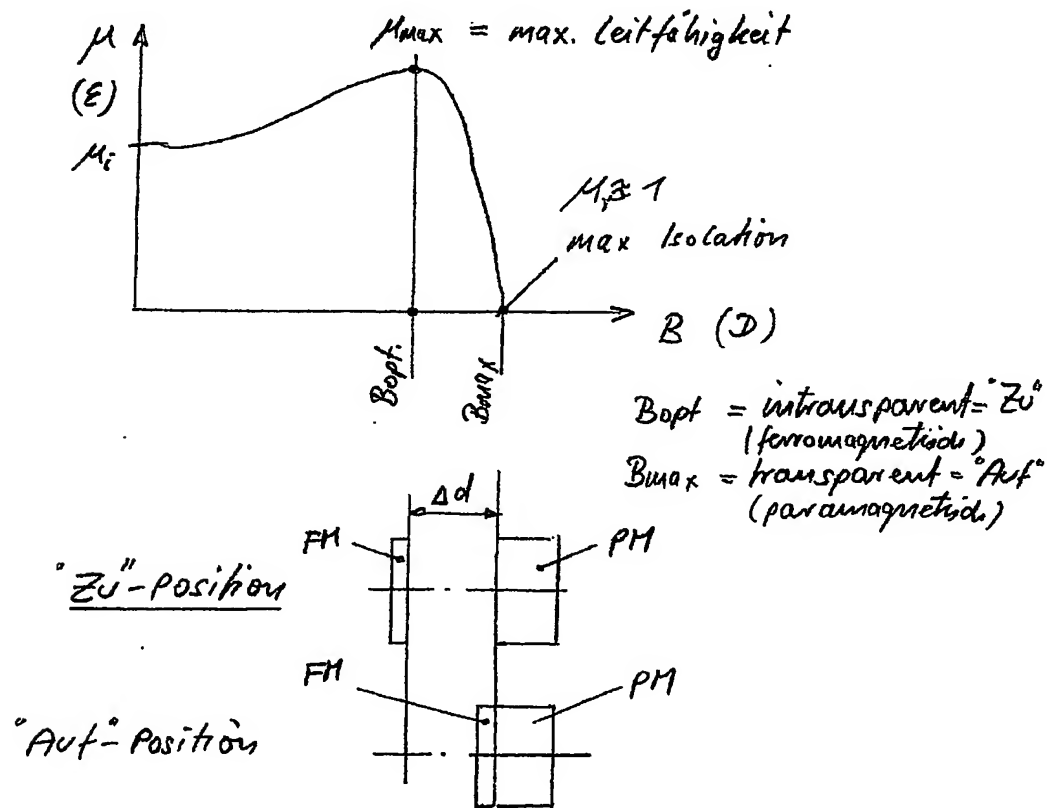 μmax = max. Leitfähigkeit
μ
(ε)
μi
μr ≅ 1
max Isolation
B (D)
Bopt.
Bmax
Bopt = intransparent = "Zu"
(ferromagnetisch)
Bmax = transparent = "Auf"
(paramagnetisch)
Δd
FM
PM
"Zu"-Position
FM
PM
"Auf"-Position